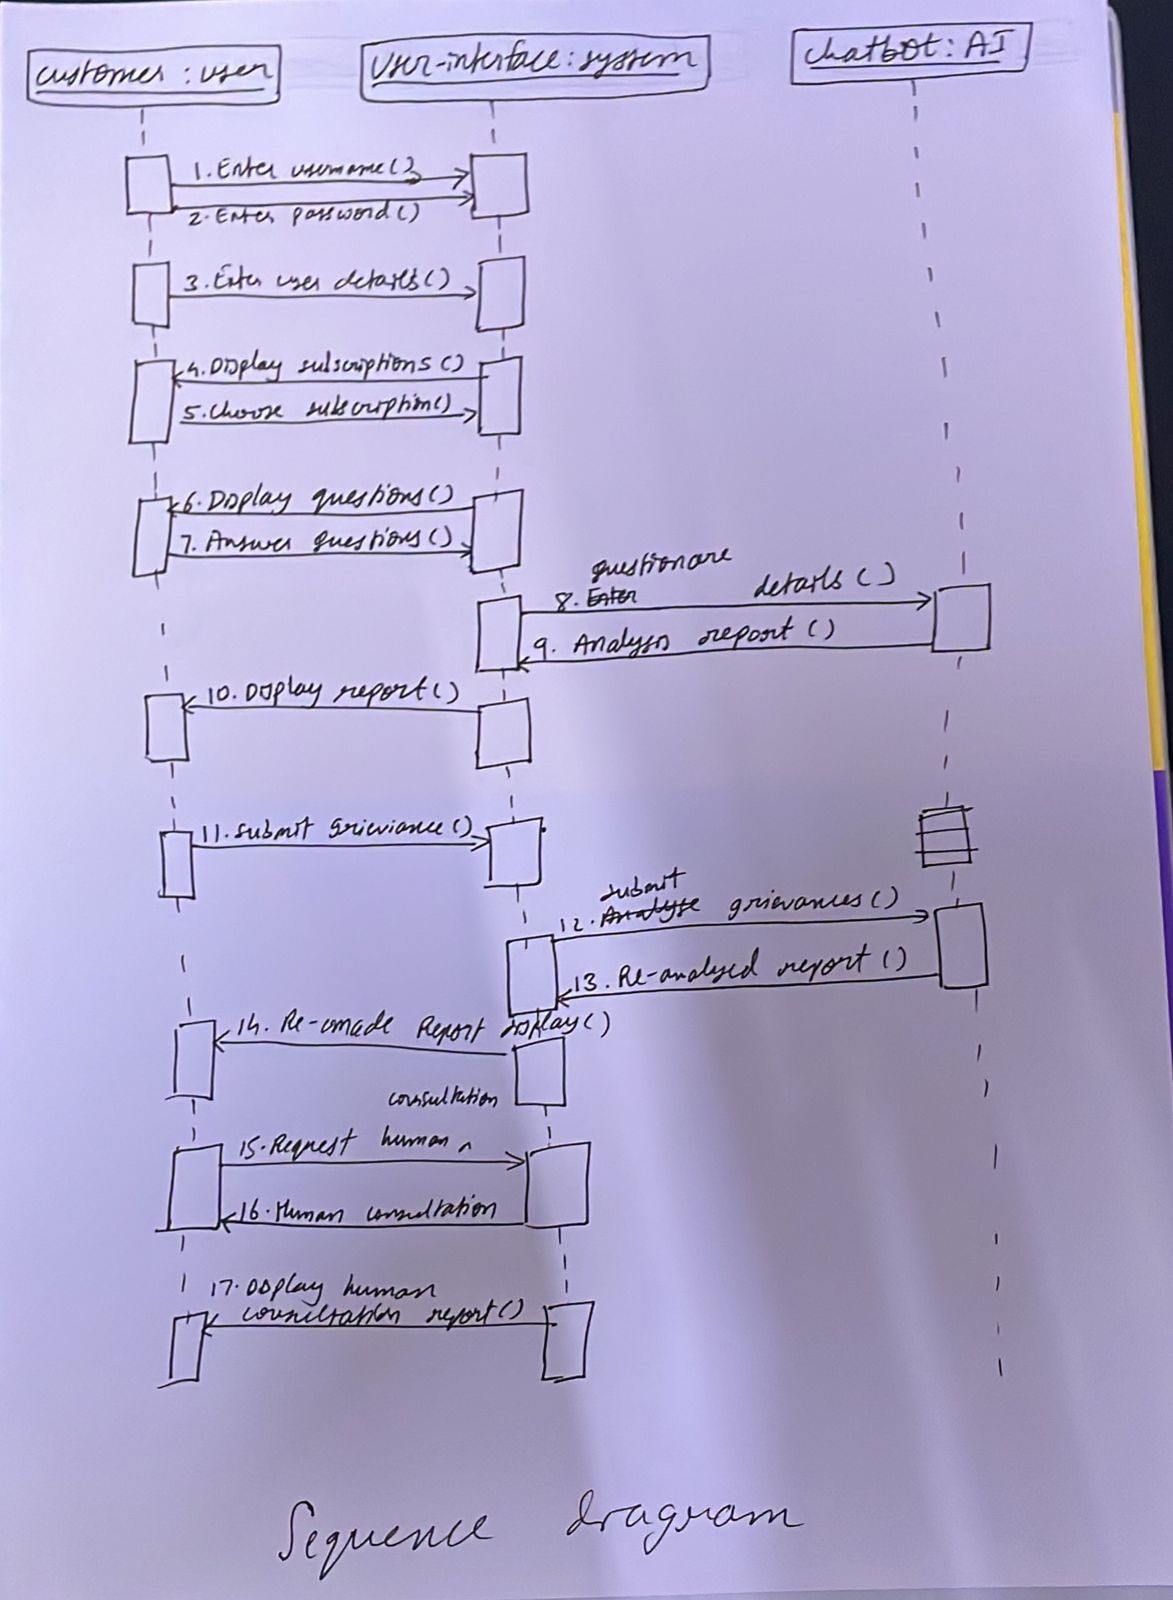 customer : user
User-interface : system
Chatbot : AI
1. Enter username()
2. Enter password()
3. Enter user details()
4. Display subscriptions()
5. Choose subscription()
6. Display questions()
7. Answer questions()
questionare
8. Enter details()
9. Analysis report()
10. Display report()
11. Submit Grieviance()
submit
12. Analyse grievances()
13. Re-analysed report()
14. Re-made Report display()
consultation
15. Request human ^
16. Human consultation
17. Display human
consultation report()
Sequence diagram